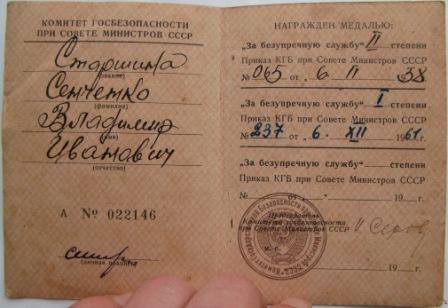 КОМИТЕТ ГОСБЕЗОПАСНОСТИ
ПРИ СОВЕТЕ МИНИСТРОВ СССР
Старшина
(звание)
Сенченко
(фамилия)
Владимир
(имя)
Иванович
(отчество)
А № 022146
(личная подпись)
НАГРАЖДЕН МЕДАЛЬЮ:
„За безупречную службу“ II степени
Приказ КГБ при Совете Министров СССР
№ 065 от „6. II 58
„За безупречную службу“ I степени
Приказ КГБ при Совете Министров СССР
№ 237 от „6. XII 1961.
„За безупречную службу“ степени
Приказ КГБ при Совете Министров СССР
№ от 19 г.
Председатель
Комитета госбезопасности
при Совете Министров СССР
М. П.
19 г.